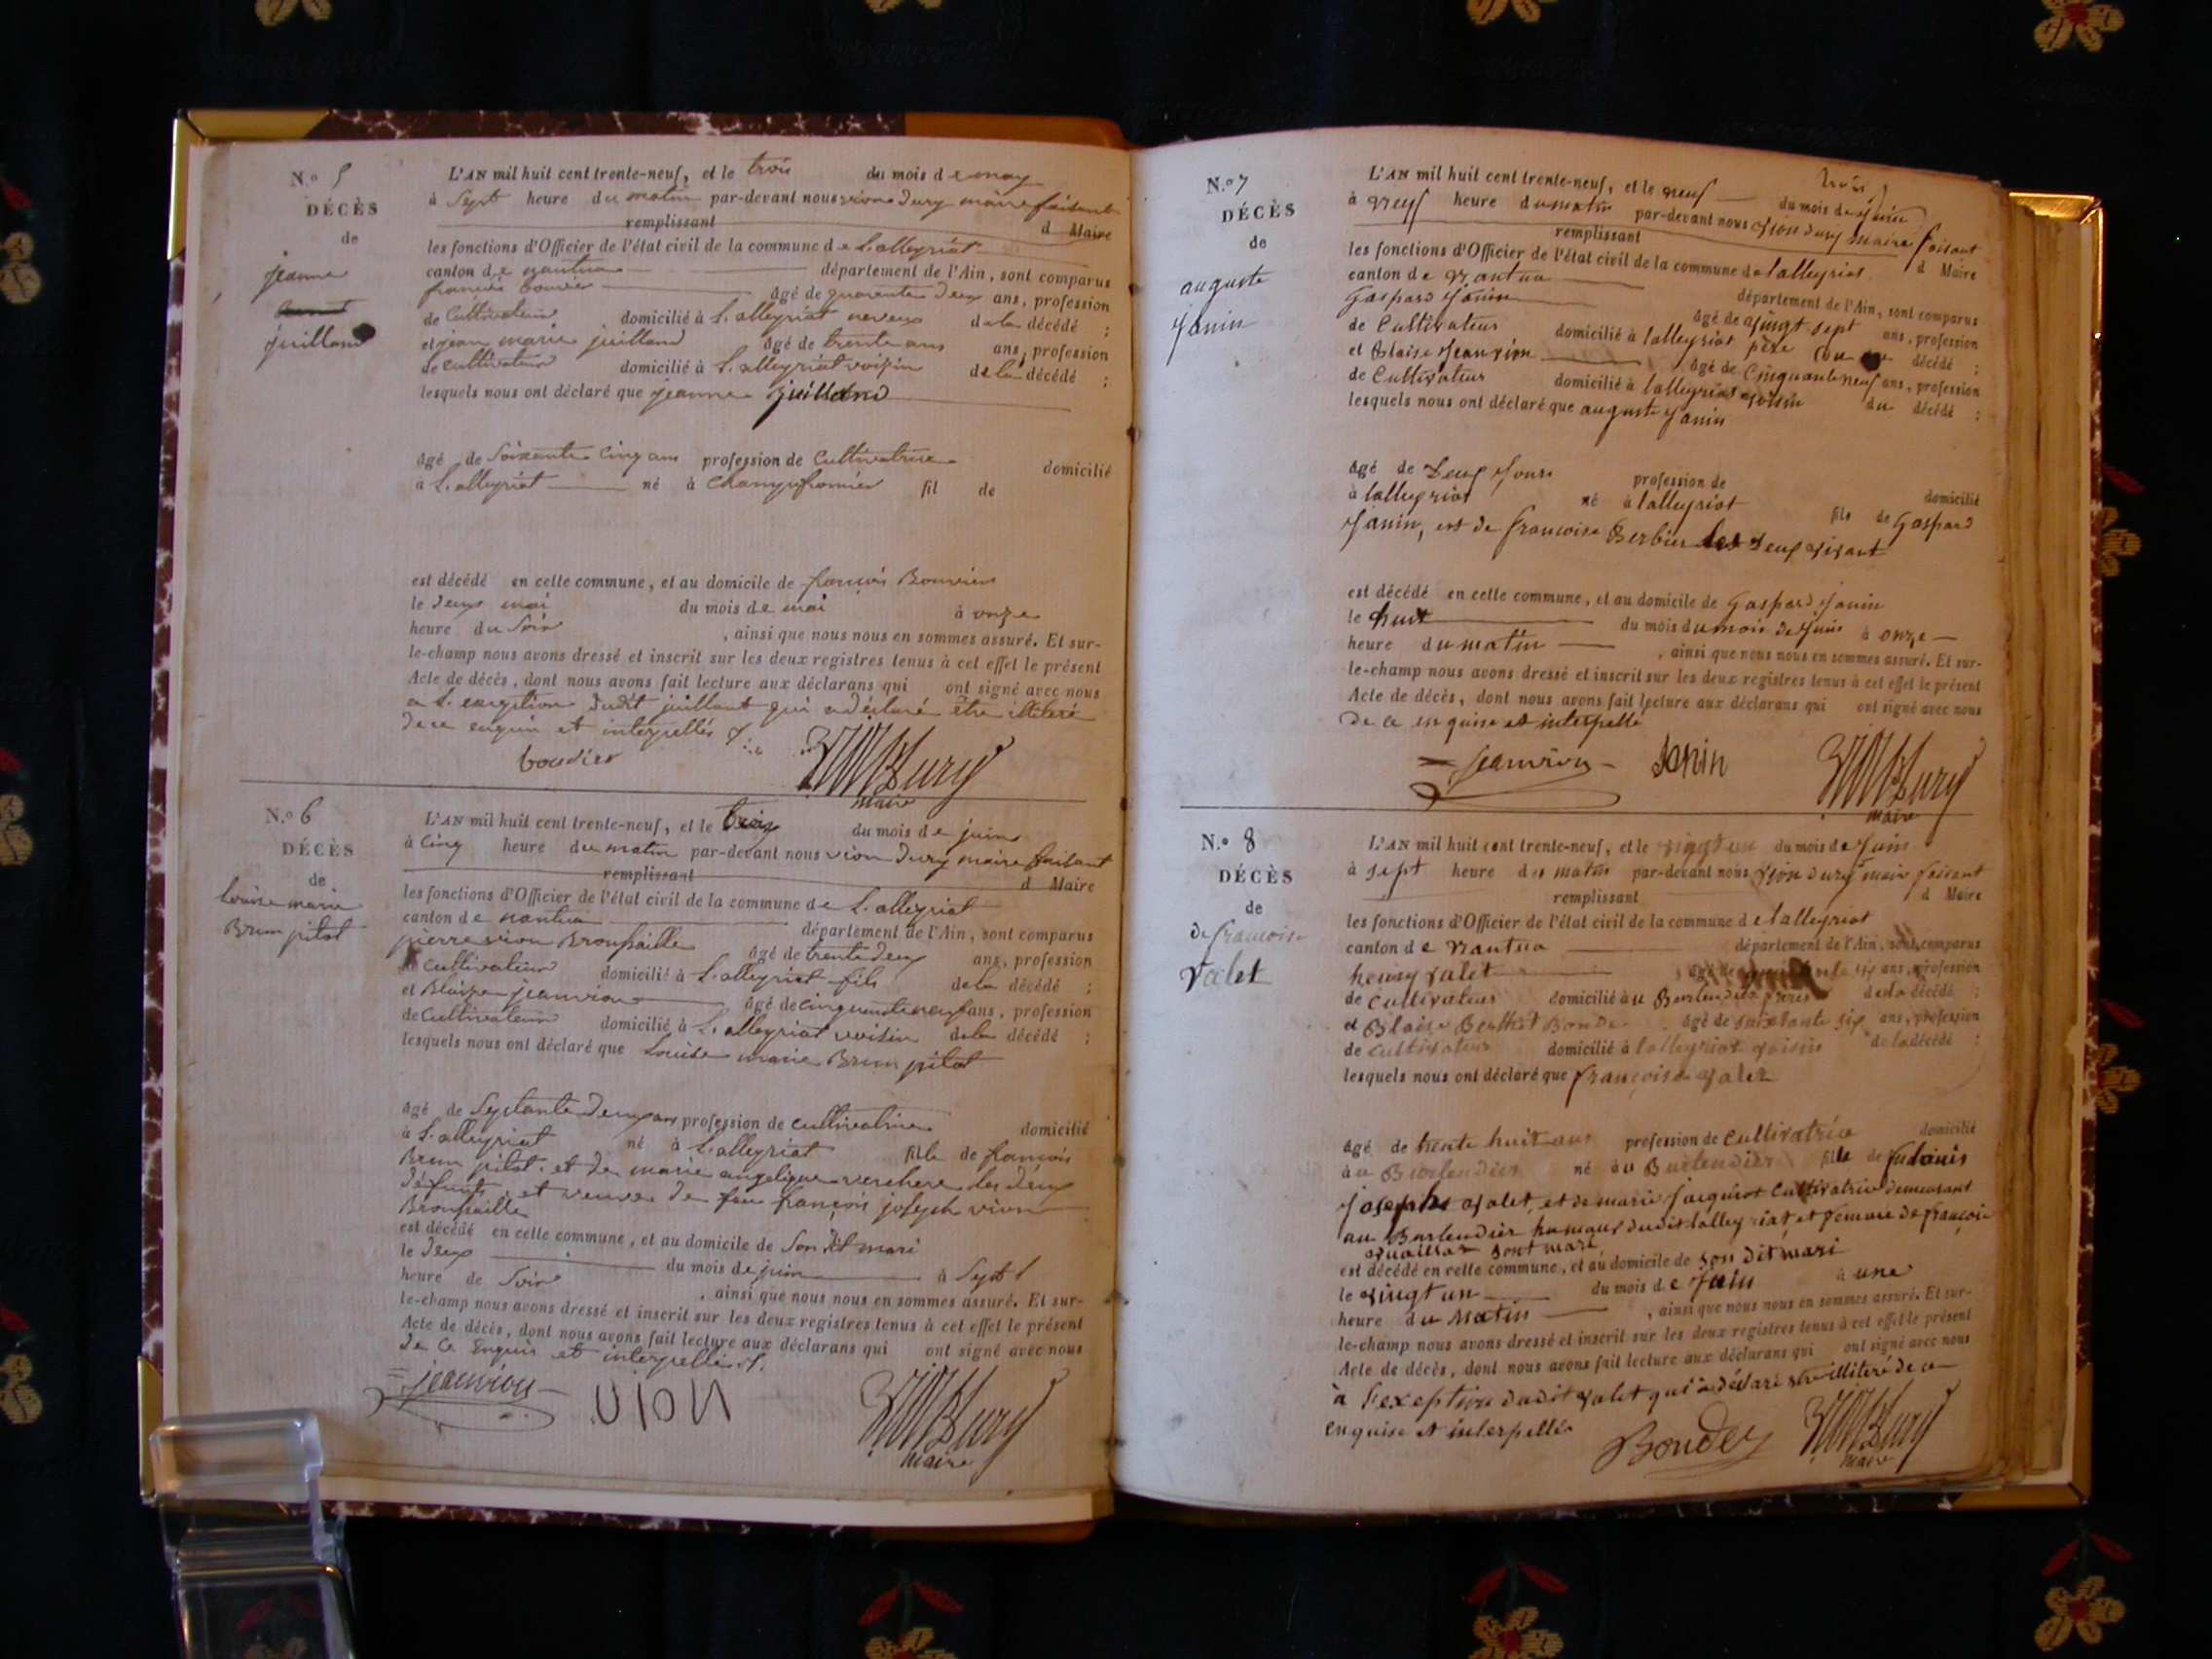 N.o 5
DÉCÈS
de
jeanne
juilland
L'AN mil huit cent trente-neuf, et le trois du mois de may
à Sept heure du matin par-devant nous vion Dury maire faisant
remplissant d Maire
les fonctions d'Officier de l'état civil de la commune de L'alleyriat
canton de nantua département de l'Ain, sont comparus
francois bouvier âgé de quarente deux ans, profession
de Cultivateur domicilié à L'alleyriat neveux de la décédé ;
et jean marie juilland âgé de trente ans ans, profession
de cultivateur domicilié à L'alleyriat voisin de la décédé ;
lesquels nous ont déclaré que jeanne juilland
âgé de Soixante Cinq ans profession de Cultivatrice domicilié
à L'alleyriat né à Champfromier fil de
est décédé en cette commune, et au domicile de françois Bouvier
le deux mai du mois de mai à onze
heure du Soir , ainsi que nous nous en sommes assuré. Et sur-
le-champ nous avons dressé et inscrit sur les deux registres tenus à cet effet le présent
Acte de décès, dont nous avons fait lecture aux déclarans qui ont signé avec nous
a L'exeption dudit juillant qui a déclaré être illiteré
de ce enquis et interpellés
bouvier Dury
maire
N.o 6
DÉCÈS
de
louise marie
Brun pitot
L'AN mil huit cent trente-neuf, et le trois du mois de juin
à Cinq heure du matin par-devant nous vion Dury maire faisant
remplissant d Maire
les fonctions d'Officier de l'état civil de la commune de L'alleyriat
canton de nantua département de l'Ain, sont comparus
pierre vion Broussaille âgé de trente deux ans, profession
de cultivateur domicilié à L'alleyriat fils de la décédé ;
et Blaize jeanvion âgé de cinquante neuf ans, profession
de Cultivateur domicilié à L'alleyriat voisin de la décédé ;
lesquels nous ont déclaré que Louise marie Brun pitot
âgé de Septante deux ans profession de cultivatrice domicilié
à L'alleyriat né à L'alleyriat fille de françois
Brun pitot et de marie angelique verchere les deux
défunts, et veuve de feu françois joseph vion
Broussaille
est décédé en cette commune, et au domicile de Son dit mari
le deux du mois de juin à Sept
heure de Soir , ainsi que nous nous en sommes assuré. Et sur-
le-champ nous avons dressé et inscrit sur les deux registres tenus à cet effet le présent
Acte de décès, dont nous avons fait lecture aux déclarans qui ont signé avec nous
de Ce Enquis et interpellé
jeanvion VION Dury
maire
N.o 7
DÉCÈS
de
auguste
Janin
L'AN mil huit cent trente-neuf, et le neuf du mois de juin
à neuf heure du matin par-devant nous vion dury maire faisant
remplissant d Maire
les fonctions d'Officier de l'état civil de la commune de lalleyriat
canton de nantua département de l'Ain, sont comparus
Gaspard Janin âgé de vingt sept ans, profession
de Cultivateur domicilié à lalleyriat père décédé ;
et Blaise Jeanvion âgé de Cinquante neuf ans, profession
de Cultivateur domicilié à lalleyriat voisin du décédé ;
lesquels nous ont déclaré que auguste Janin
âgé de Deux Jours profession de domicilié
à lalleyriat né à lalleyriat fils de Gaspard
Janin, est de francoise Berbier les deux vivant
est décédé en cette commune, et au domicile de Gaspard Janin
le huit du mois du mois de Juin à onze
heure du matin , ainsi que nous nous en sommes assuré. Et sur-
le-champ nous avons dressé et inscrit sur les deux registres tenus à cet effet le présent
Acte de décès, dont nous avons fait lecture aux déclarans qui ont signé avec nous
de ce enquise et interpellé
jeanvion Janin Dury
maire
N.o 8
DÉCÈS
de
de francoise
Valet
L'AN mil huit cent trente-neuf, et le vingt un du mois de Juin
à sept heure du matin par-devant nous vion dury mair faisant
remplissant d Maire
les fonctions d'Officier de l'état civil de la commune de lalleyriat
canton de nantua département de l'Ain, sont comparus
henry valet âgé de ans, profession
de Cultivateur domicilié au Burlendier de la décédé ;
et Blaise Berthet Bondet âgé de soixante six ans, profession
de Cultivateur domicilié à lalleyriat voisin de la décédé ;
lesquels nous ont déclaré que françoise valet
âgé de trente huit ans profession de Cultivatrice domicilié
à au Burlendier né au Burlendier fille de
Josephe valet, et de marie Jacquiot Cultivatrice demeurant
au Burlendier hameau dudit lalleyriat et femme de françois
sont mari
est décédé en cette commune, et au domicile de son dit mari
le vingt un du mois de Juin à une
heure du Matin , ainsi que nous nous en sommes assuré. Et sur-
le-champ nous avons dressé et inscrit sur les deux registres tenus à cet effet le présent
Acte de décès, dont nous avons fait lecture aux déclarans qui ont signé avec nous
à l'exeption dudit valet qui a déclaré être illiteré de ce
enquise et interpellés
Bondet Dury
maire